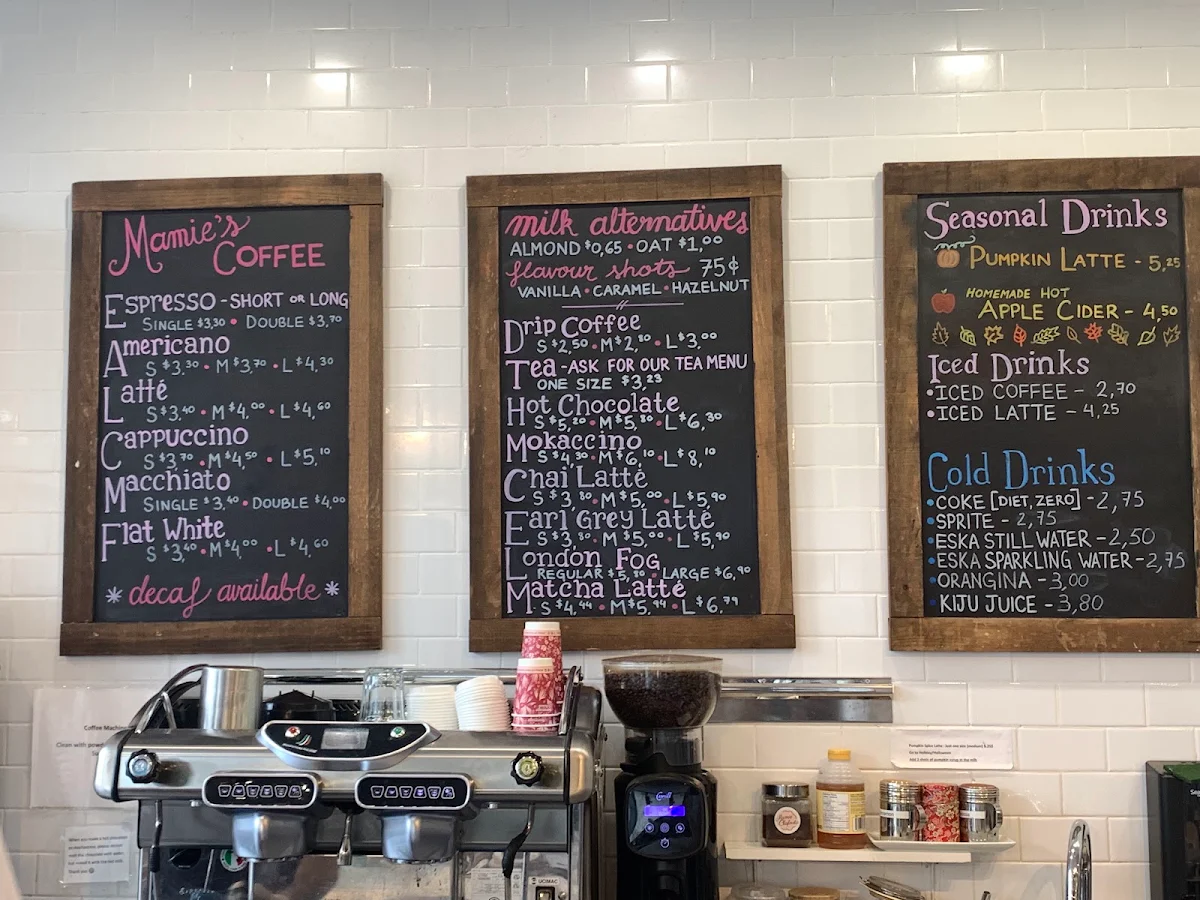 Mamie's
COFFEE
ESPRESSO - SHORT OR LONG
SINGLE $3,30 • DOUBLE $3,70
Americano
S $3,30 • M $3,70 • L $4,30
Latté
S $3,40 • M $4,00 • L $4,60
Cappuccino
S $3,70 • M $4,50 • L $5,10
Macchiato
SINGLE $3,40 • DOUBLE $4,00
Flat White
S $3,40 • M $4,00 • L $4,60
* decaf available *
milk alternatives
ALMOND $0,65 • OAT $1,00
flavour shots 75¢
VANILLA • CARAMEL • HAZELNUT
Drip Coffee
S $2,50 • M $2,80 • L $3,00
Tea - ASK FOR OUR TEA MENU
ONE SIZE $3,23
Hot Chocolate
S $5,20 • M $5,80 • L $6,30
Mokaccino
S $4,30 • M $6,10 • L $8,10
Chai Latté
S $3,80 • M $5,00 • L $5,90
Earl Grey Latté
S $3,80 • M $5,00 • L $5,90
London Fog
REGULAR $5,80 • LARGE $6,90
Matcha Latté
S $4,44 • M $5,94 • L $6,79
Seasonal Drinks
PUMPKIN LATTE - 5,25
HOMEMADE HOT
APPLE CIDER - 4,50
Iced Drinks
• ICED COFFEE - 2,70
• ICED LATTE - 4,25
Cold Drinks
• COKE [DIET, ZERO] - 2,75
• SPRITE - 2,75
• ESKA STILL WATER - 2,50
• ESKA SPARKLING WATER - 2,75
• ORANGINA - 3,00
• KIJU JUICE - 3,80
Coffee Machine